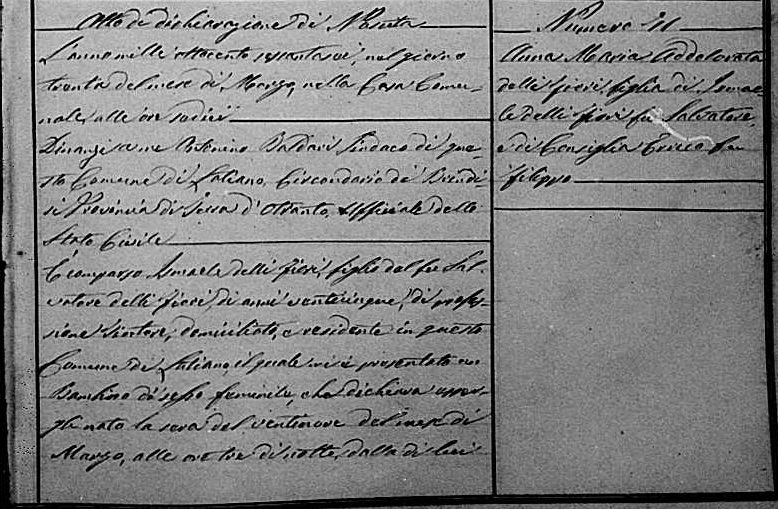 Atto di dichiarazione di Nascita
L'anno mille ottocento sessanta sei, nel giorno
trenta del mese di Marzo, nella Casa Comu-
nale, alle ore sedici
Dinanzi a me Antonino Baldari Sindaco di que-
sto Comune di Latiano, Circondario di Brindi-
si Provincia di Terra d'Otranto, Uffiziale dello
Stato Civile
È comparso Ismaele delli fiori, figlio del fu Sal-
vatore delli fiori, di anni venticinque, di profes-
sione domiciliato, e residente in questo
Comune di Latiano, il quale mi à presentato un
Bambino di sesso feminile, che dichiara esser-
gli nato la sera del ventinove del mese di
Marzo, alle ore tre di notte, dalla di lui
Numero 71
Anna Maria Addolorata
delli fiori, figlia di Ismae-
le delli fiori fu Salvatore,
e di Consiglia fu
filippo